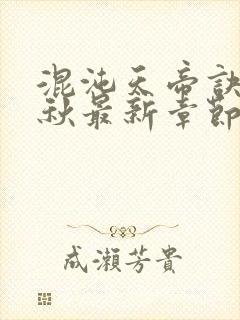 混沌天帝訣
秋最新章節
成瀨芳貴